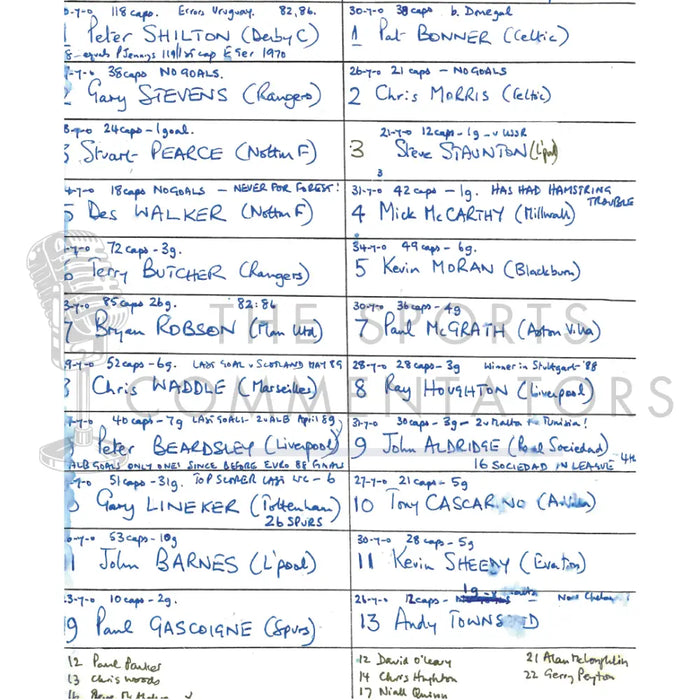 118 caps. Errors Uruguay. 82,86.
1 Peter SHILTON (Derby C)
8 - equals P Jennings 119/1st cap E Ger 1970
38 caps NO GOALS.
2 Gary STEVENS (Rangers)
24 caps - 1 goal.
3 Stuart PEARCE (Nottm F)
18 caps NO GOALS - NEVER FOR FOREST!
5 Des WALKER (Nottm F)
72 caps - 3g.
6 Terry BUTCHER (Rangers)
85 caps 26g. 82:86
7 Bryan ROBSON (Man Utd)
52 caps - 6g. LAST GOAL v SCOTLAND MAY 89
8 Chris WADDLE (Marseilles)
40 caps - 7g LAST GOALS - 2 v ALB April 89
Peter BEARDSLEY (Liverpool)
ALB GOALS ONLY ONES SINCE BEFORE EURO 88
51 caps - 31g. TOP SCORER LAST WC - 6
Gary LINEKER (Tottenham)
26 SPURS
53 caps - 10g
11 John BARNES (L'pool)
10 caps - 2g.
19 Paul GASCOIGNE (Spurs)
12 Paul Parker
13 Chris Woods
30-7-0 38 caps b. Donegal
1 Pat BONNER (Celtic)
26-7-0 21 caps - NO GOALS
2 Chris MORRIS (Celtic)
21-7-0 12 caps - 1g - v USSR
3 Steve STAUNTON (L'pool)
3
31-7-0 42 caps - 1g. HAS HAD HAMSTRING TROUBLE
4 Mick McCARTHY (Millwall)
34-7-0 49 caps - 6g.
5 Kevin MORAN (Blackburn)
30-7-0 36 caps - 4g
7 Paul McGRATH (Aston Villa)
28-7-0 28 caps - 3g Winner in Stuttgart '88
8 Ray HOUGHTON (Liverpool)
31-7-0 30 caps - 3g - 2 v Malta + Tunisia!
9 John ALDRIDGE (Real Sociedad)
16 SOCIEDAD IN LEAGUE 4th
27-7-0 21 caps - 5g
10 Tony CASCARINO (A Villa)
30-7-0 28 caps - 5g
11 Kevin SHEEDY (Everton)
26-7-0 12 caps - 1g - v Now Chelsea
13 Andy TOWNS D
12 David O'Leary
14 Chris Hughton
17 Niall Quinn
21 Alan McLoughlin
22 Gerry Peyton
THE SPORTS
COMMENTATORS